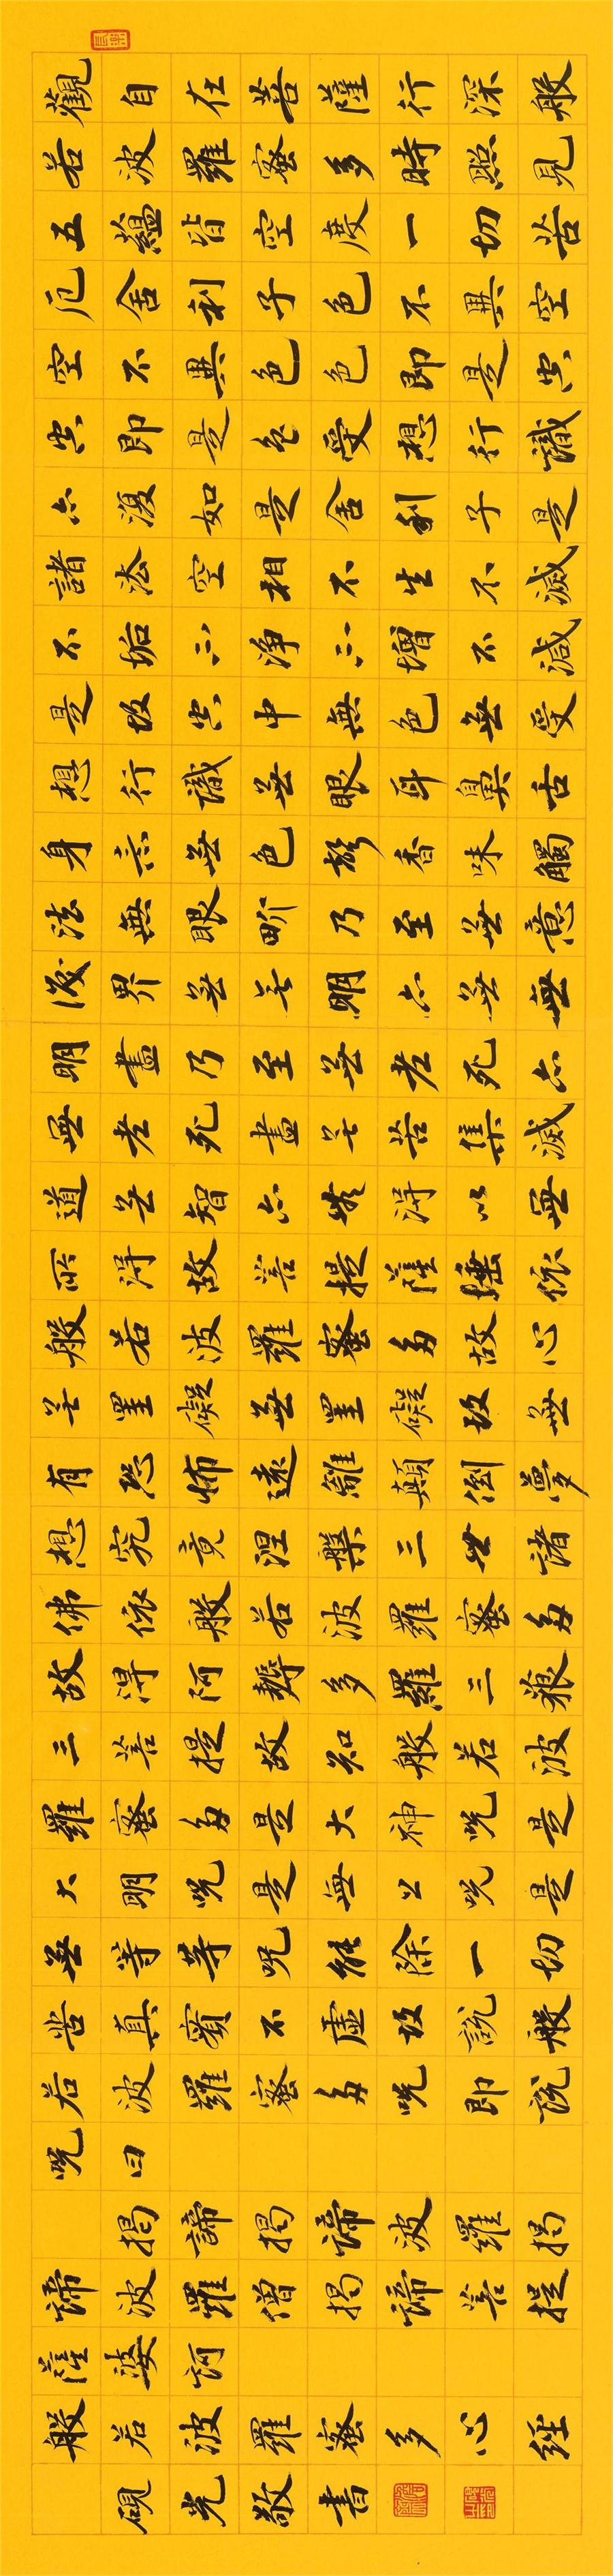 觀自在菩薩行深般
若波羅蜜多時照見
五蘊皆空度一切苦
厄舍利子色不異空
空不異色色即是空
空即是色受想行識
亦復如是舍利子是
諸法空相不生不滅
不垢不淨不增不減
是故空中無色無受
想行識無眼耳鼻舌
身意無色聲香味觸
法無眼界乃至無意
識界無無明亦無無
明盡乃至無老死亦
無老死盡無苦集滅
道無智亦無得以無
所得故菩提薩埵依
般若波羅蜜多故心
無罣礙無罣礙故無
有恐怖遠離顛倒夢
想究竟涅槃三世諸
佛依般若波羅蜜多
故得阿耨多羅三藐
三菩提故知般若波
羅蜜多是大神呪是
大明呪是無上呪是
無等等呪能除一切
苦真實不虛故說般
若波羅蜜多呪即說
呪曰
揭諦揭諦波羅揭
諦波羅僧揭諦菩提
薩婆訶
般若波羅蜜多心經
硯光敬書